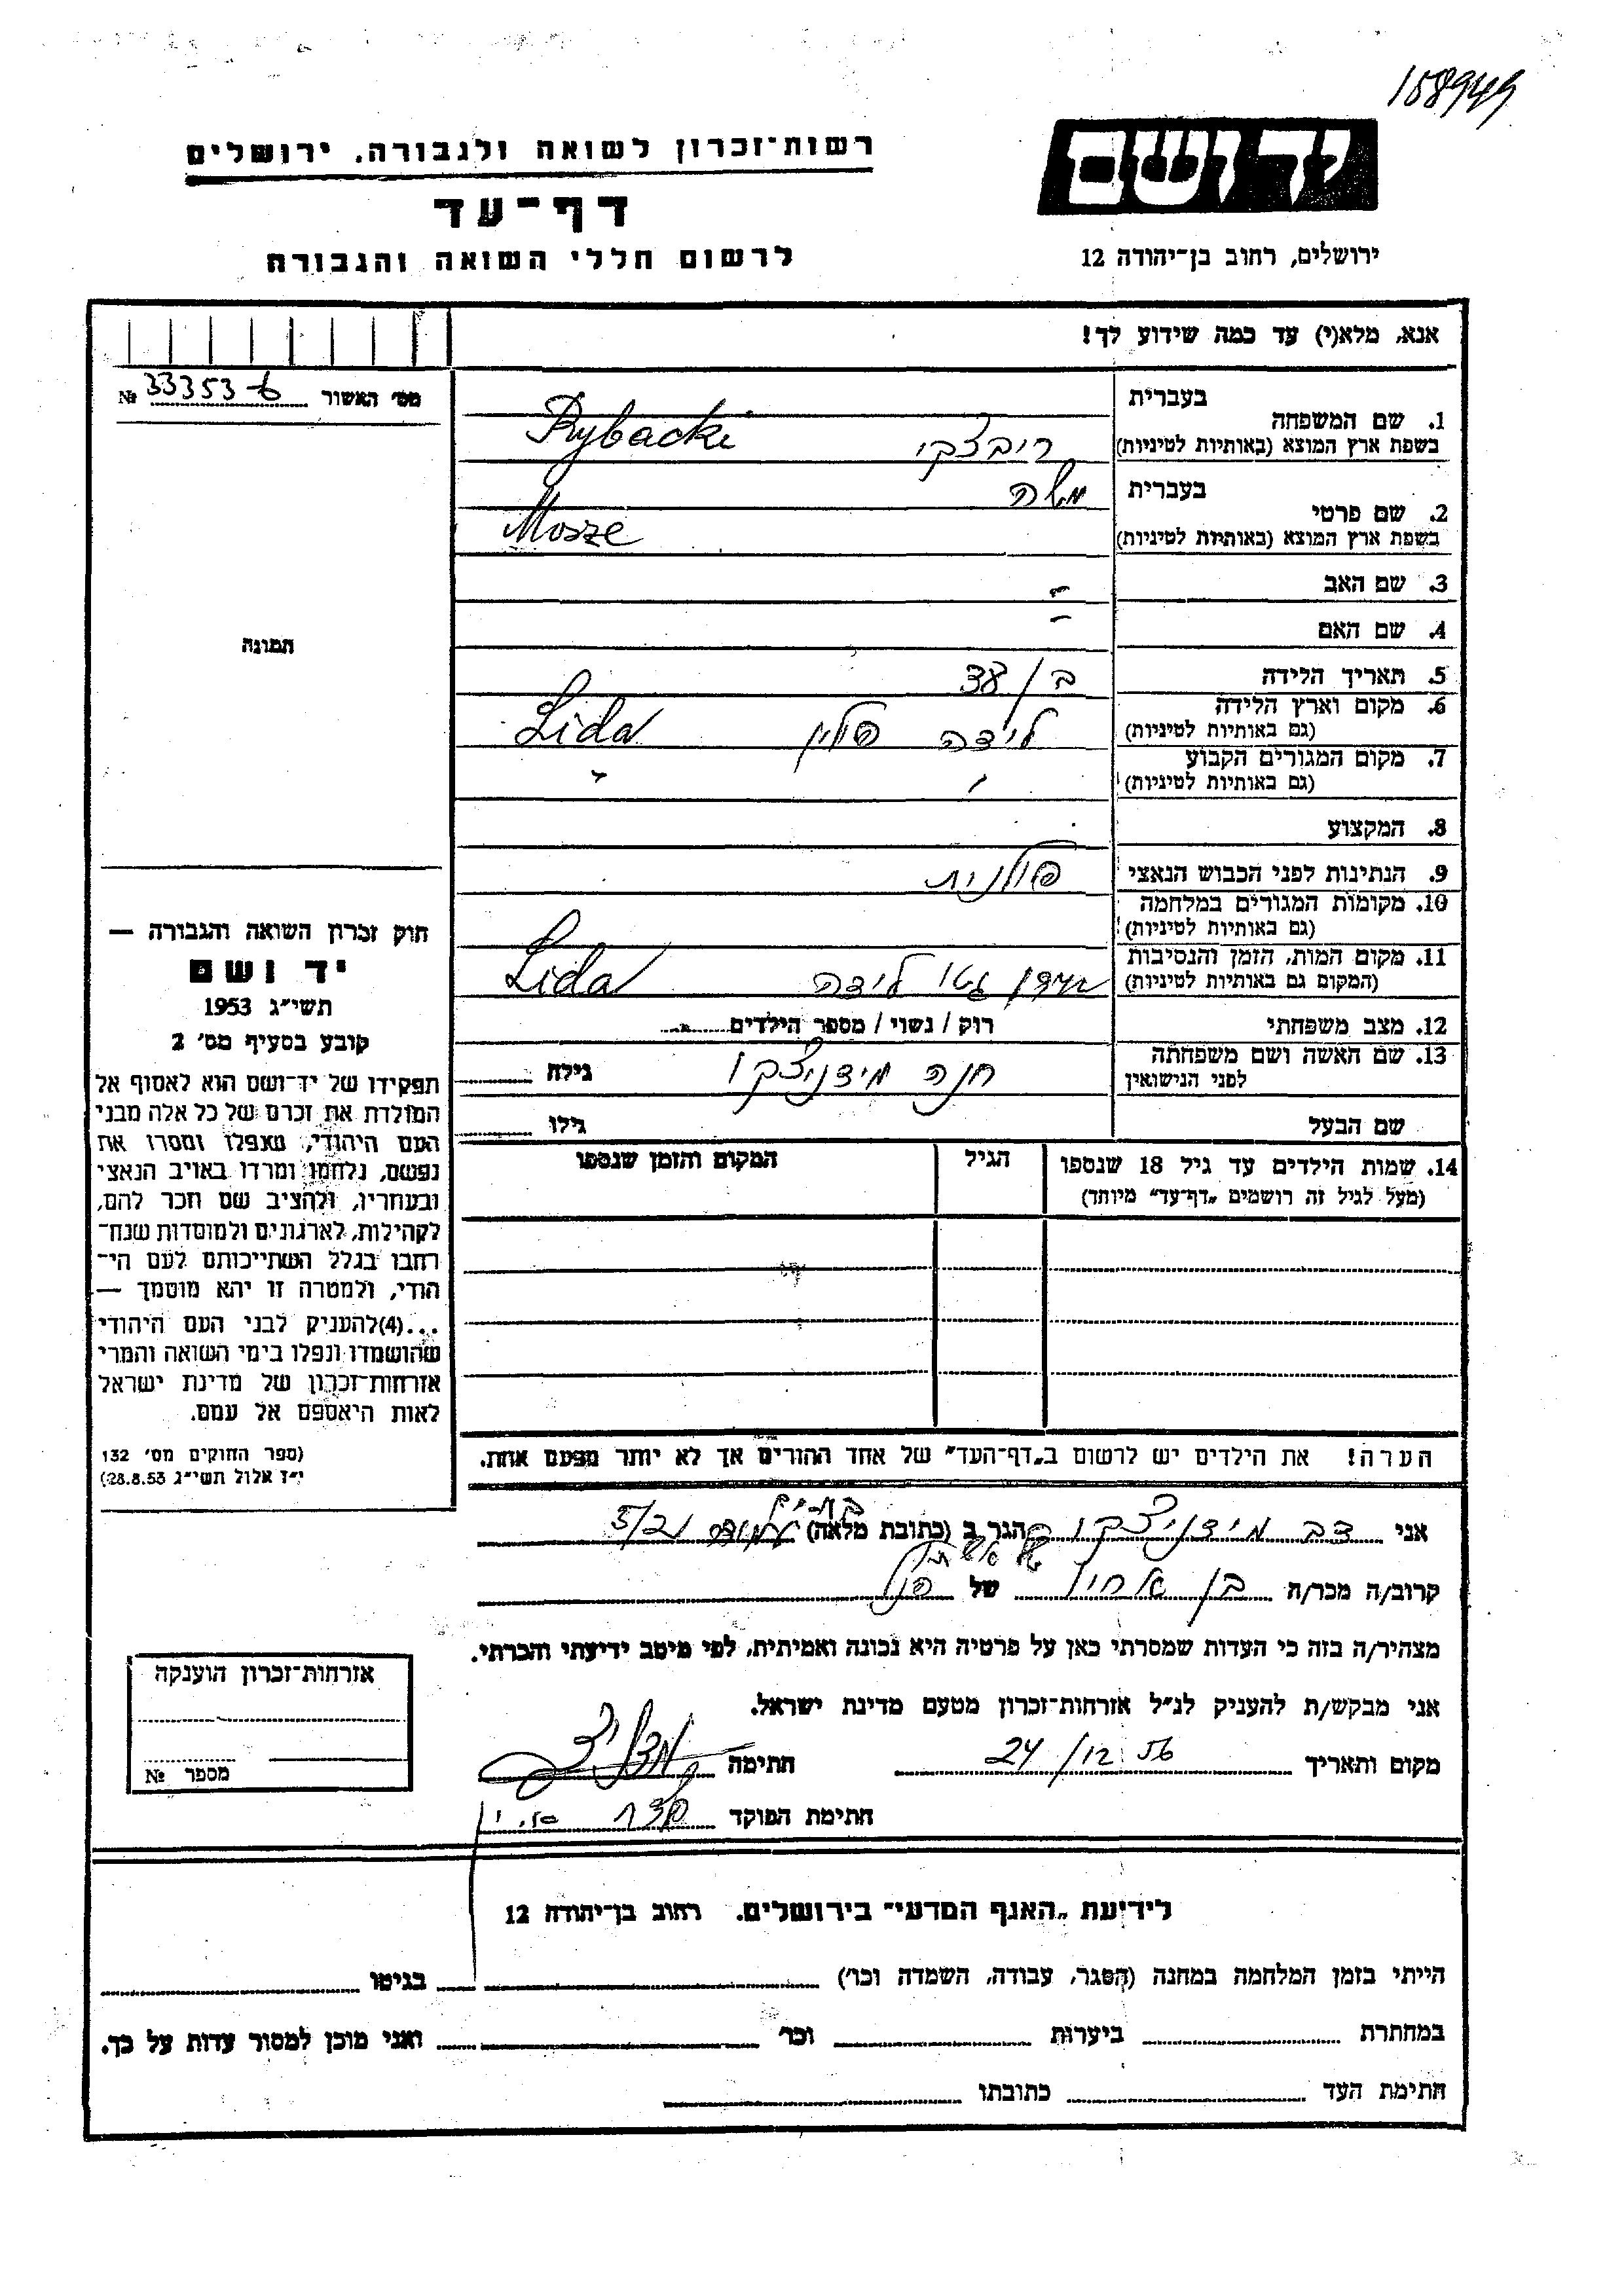 158949
יד ושם
רשות־זכרון לשואה ולגבורה, ירושלים
דף־עד
לרשום חללי השואה והגבורה
ירושלים, רחוב בן־יהודה 12
אנא, מלא(י) עד כמה שידוע לך!
מס׳ האשור 33353 №
בעברית
1. שם המשפחה
ריבצקי Rybacki
בשפת ארץ המוצא (באותיות לטיניות)
בעברית משה
2. שם פרטי
Mosze
בשפת ארץ המוצא (באותיות לטיניות)
3. שם האב -
4. שם האם -
תמונה
5. תאריך הלידה
6. מקום וארץ הלידה לידה פולין Lida
(גם באותיות לטיניות)
7. מקום המגורים הקבוע
(גם באותיות לטיניות)
8. המקצוע
9. הנתינות לפני הכבוש הנאצי פולנית
10. מקומות המגורים במלחמה
(גם באותיות לטיניות)
11. מקום המות, הזמן והנסיבות גטו לידה Lida
(המקום גם באותיות לטיניות)
12. מצב משפחתי רוק / נשוי / מספר הילדים
13. שם האשה ושם משפחתה חנה מידניצקי גילה
לפני הנישואין
שם הבעל גילו
14. שמות הילדים עד גיל 18 שנספו הגיל המקום והזמן שנספו
(מעל לגיל זה רושמים „דף־עד״ מיוחד)
חוק זכרון השואה והגבורה —
יד ושם
תשי״ג 1953
קובע בסעיף מס׳ 2
תפקידו של יד־ושם הוא לאסוף אל
המולדת את זכרם של כל אלה מבני
העם היהודי, שנפלו ומסרו את
נפשם, נלחמו ומרדו באויב הנאצי
ובעוזריו, ולהציב שם וזכר להם,
לקהילות, לארגונים ולמוסדות שנח־
רבו בגלל השתייכותם לעם הי־
הודי, ולמטרה זו יהא מוסמך —
...(4)להעניק לבני העם היהודי
שהושמדו ונפלו בימי השואה והמרי
אזרחות־זכרון של מדינת ישראל
לאות היאספם אל עמם.
(ספר החוקים מס׳ 132
י״ז אלול תשי״ג 28.8.53)
הערה! את הילדים יש לרשום ב„דף־העד״ של אחד ההורים אך לא יותר מפעם אחת.
אני דב מידניצקי הגר ב (כתובת מלאה) 5/21
קרוב/ה מכר/ה של
מצהיר/ה בזה כי העדות שמסרתי כאן על פרטיה היא נכונה ואמיתית, לפי מיטב ידיעתי והכרתי.
אני מבקש/ת להעניק לנ״ל אזרחות־זכרון מטעם מדינת ישראל.
מקום ותאריך 24/12 56 חתימה
חתימת הפוקד
אזרחות־זכרון הוענקה
מספר №
לידיעת „האגף המדעי״ בירושלים. רחוב בן־יהודה 12
הייתי בזמן המלחמה במחנה (הסגר, עבודה, השמדה וכו׳) בגיטו
במחתרת ביערות וכו׳ ואני מוכן למסור עדות על כך.
חתימת העד כתובתו